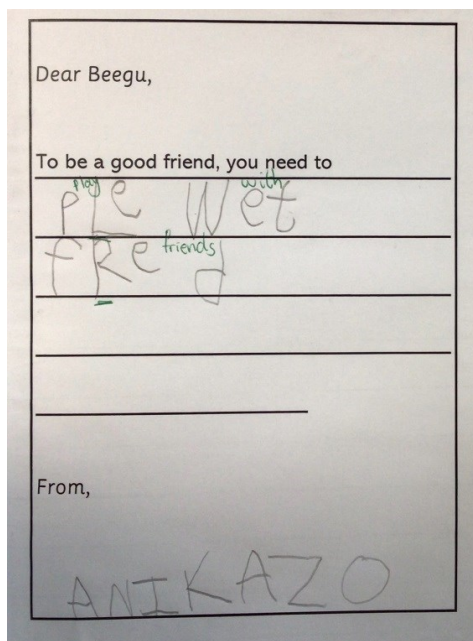 Dear Beegu,
To be a good friend, you need to
play with
PLe Wet
friends
fRe d
From,
ANIKAZO